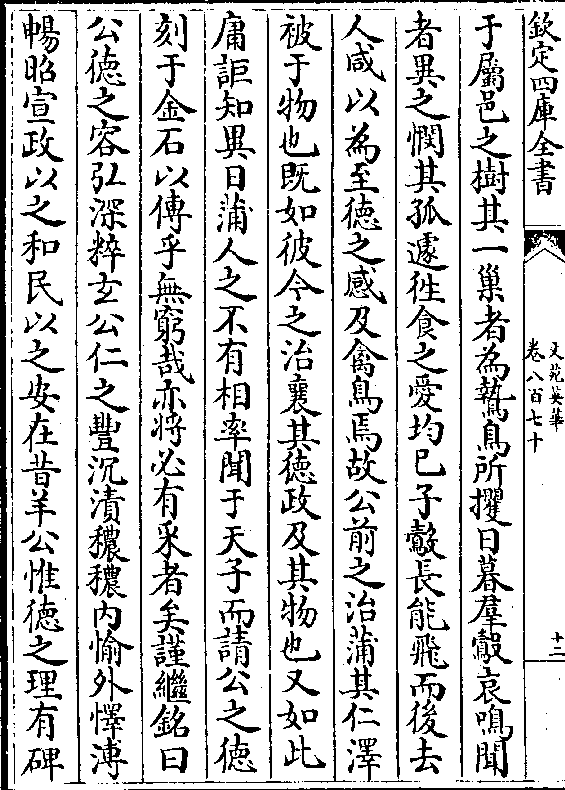 欽定四庫全書
文苑英華
卷八百七十
十二
于屬邑之樹其一巢者為鷙鳥所攫日暮羣鷇哀鳴聞
者異之憫其孤遽徃食之愛均已子鷇長能飛而後去
人咸以為至徳之感及禽鳥焉故公前之治蒲其仁澤
被于物也既如彼今之治襄其徳政及其物也又如此
庸詎知異日蒲人之不有相率聞于天子而請公之德
刻于金石以傳乎無窮哉亦將必有采者矣謹繼銘曰
公德之容弘深粹玄公仁之豐沉漬穠穠内愉外懌溥
暢昭宣政以之和民以之安在昔羊公惟德之理有碑